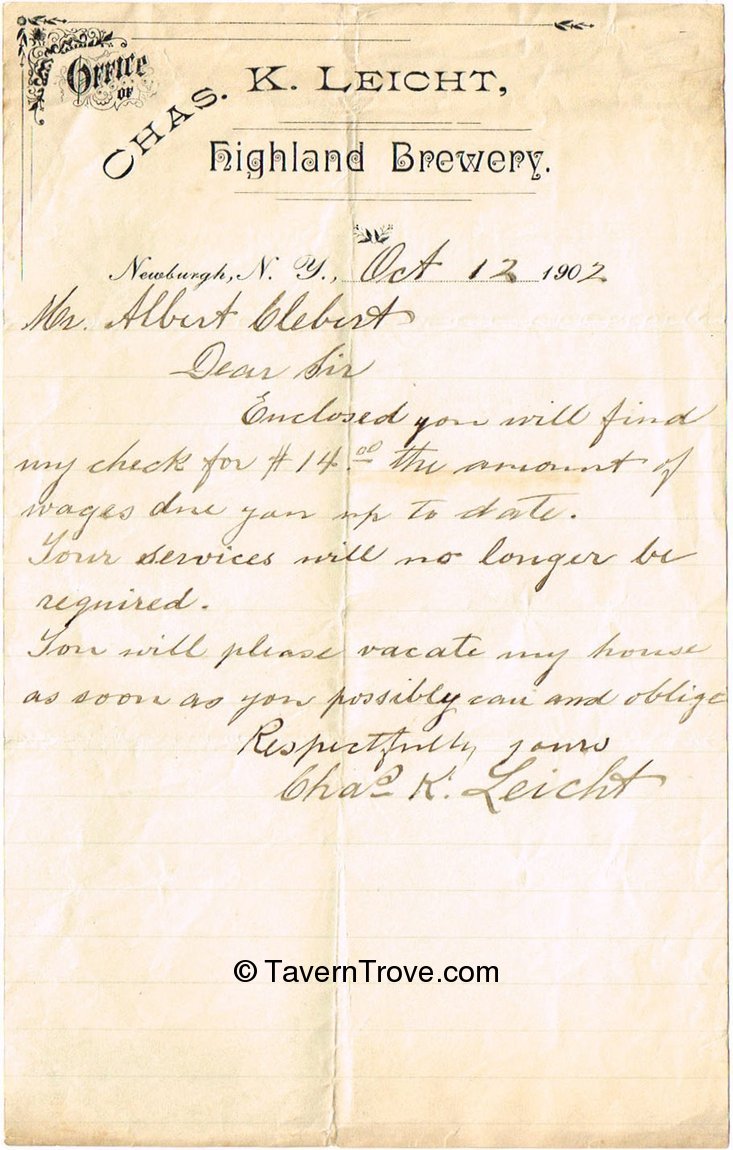 Office
of
Chas. K. Leicht,
Highland Brewery.
Newburgh, N. Y., Oct 12 1902
Mr. Albert Clebert
Dear Sir
Enclosed you will find
my check for $14.00 the amount of
wages due you up to date.
Your services will no longer be
required.
You will please vacate my house
as soon as you possibly can and oblige
Respectfully yours
Chas K. Leicht
© TavernTrove.com